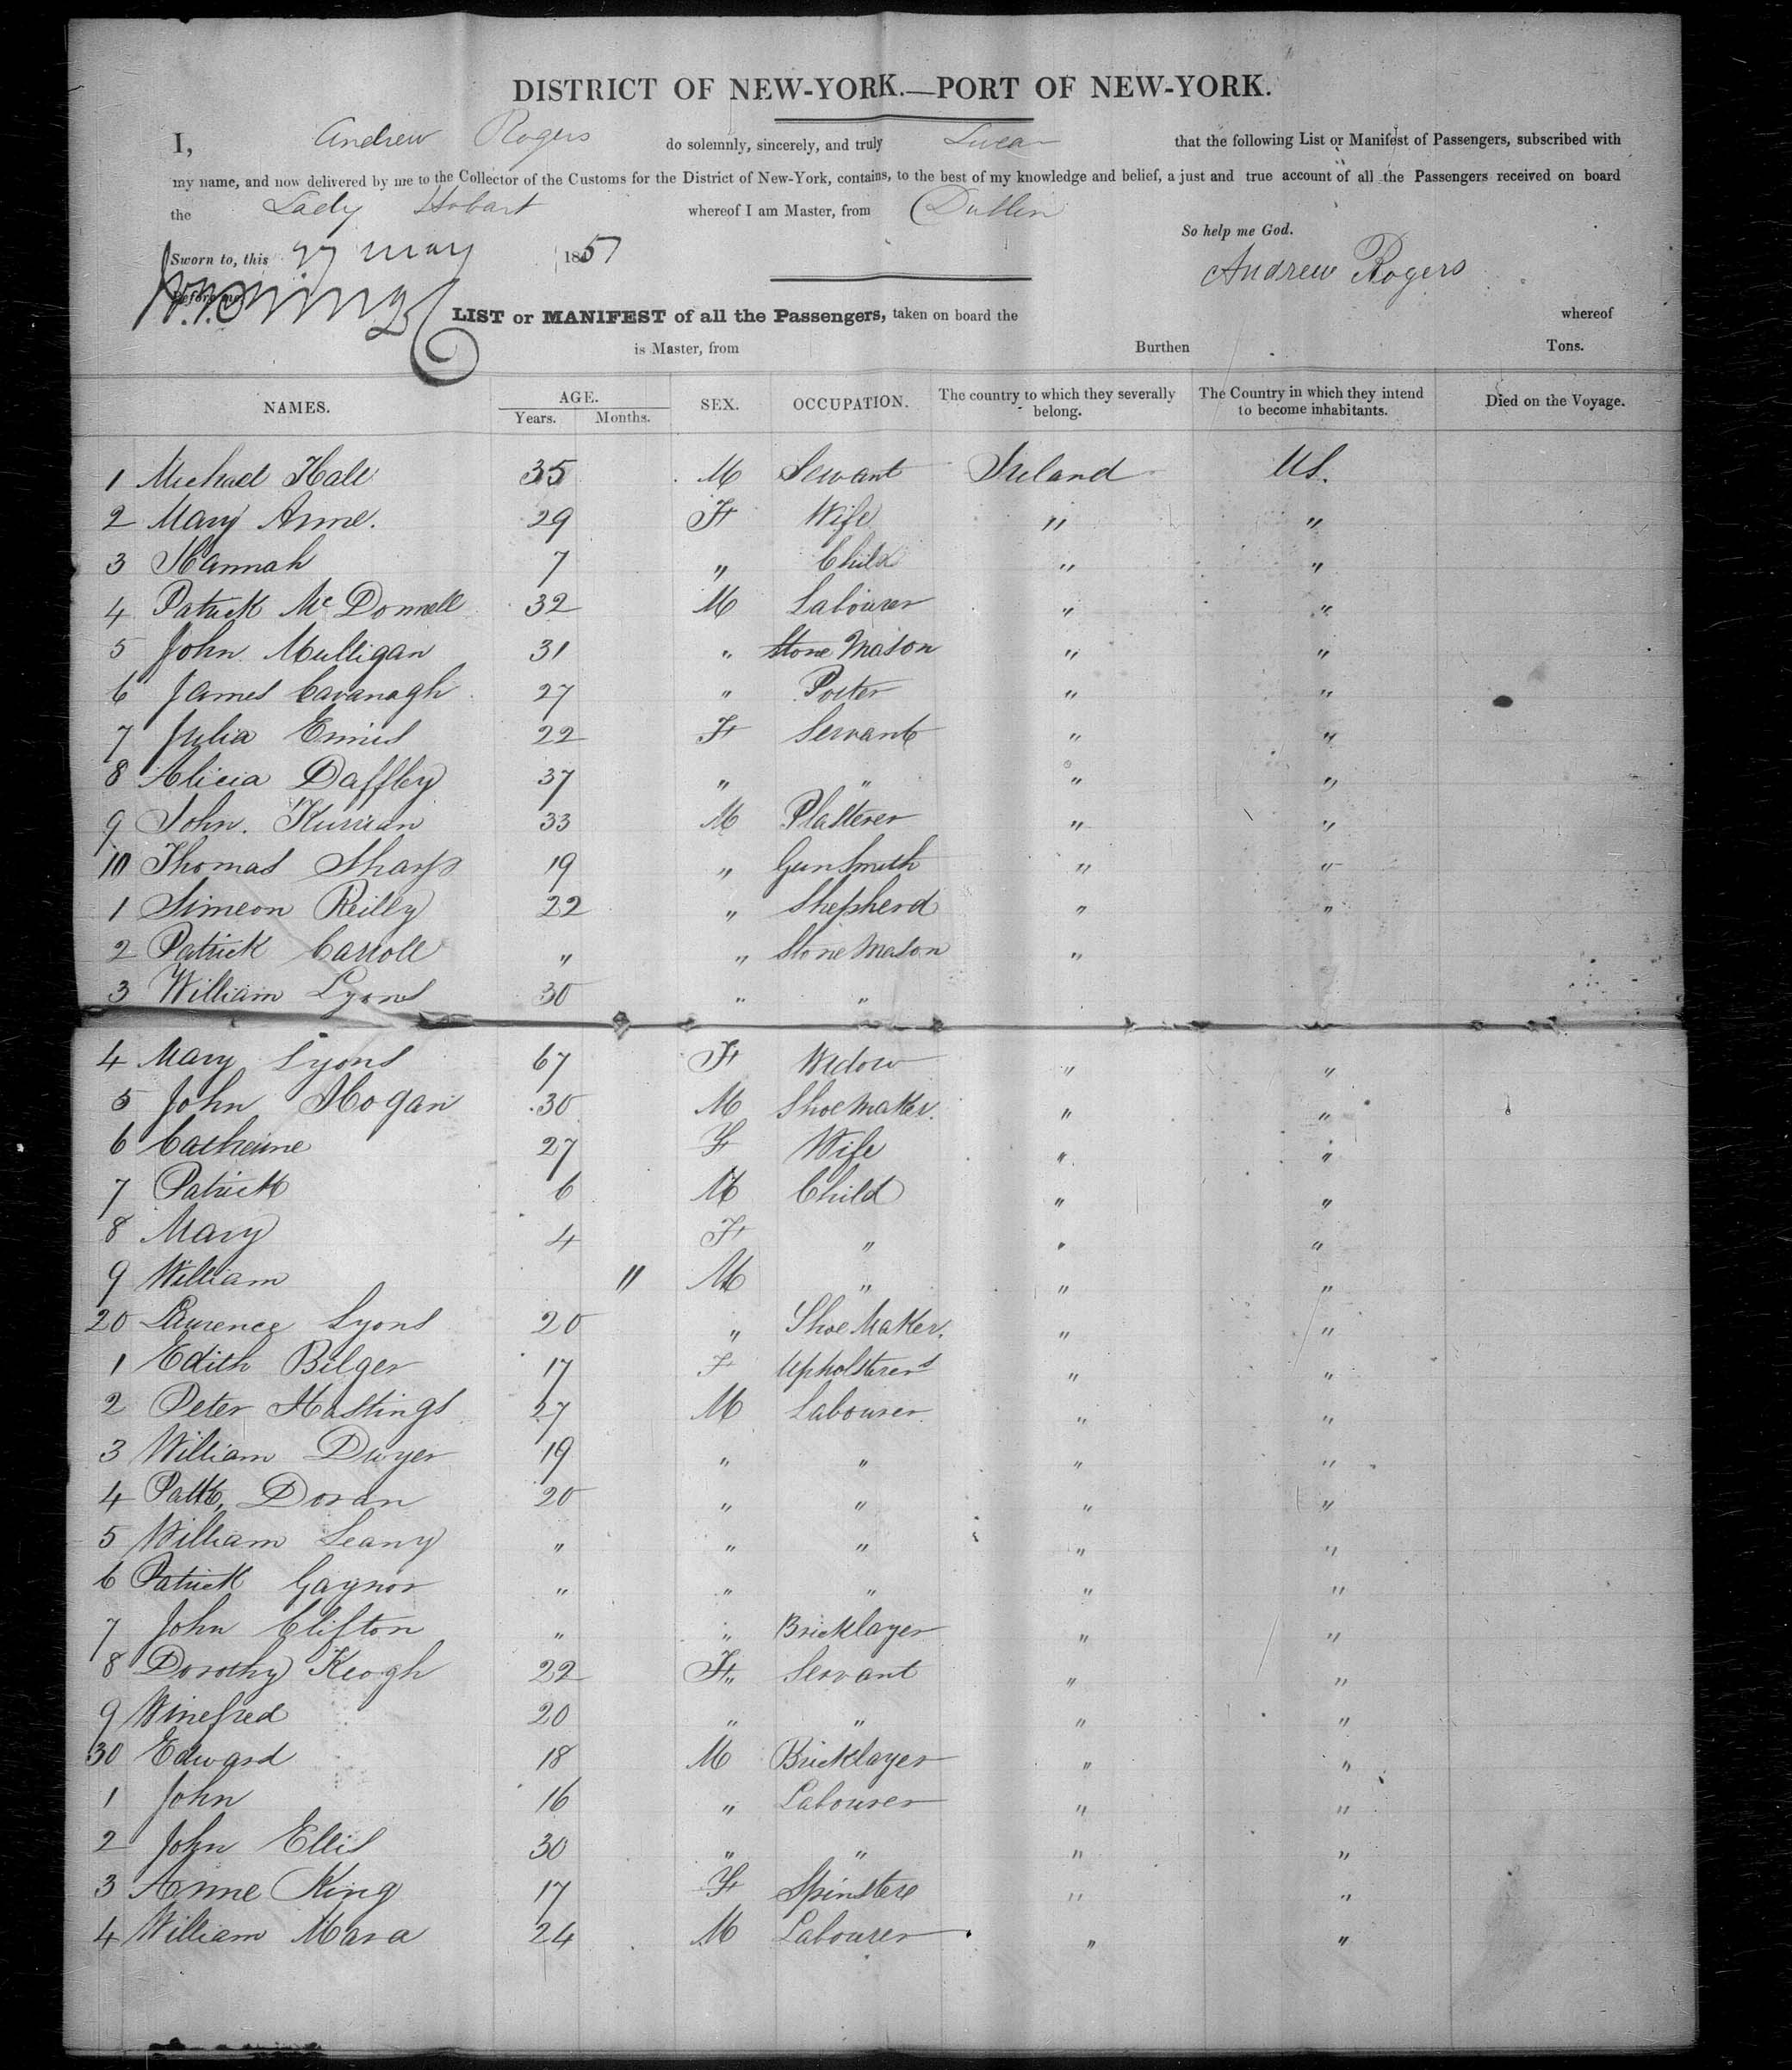 DISTRICT OF NEW-YORK.—PORT OF NEW-YORK.
I, Andrew Rogers do solemnly, sincerely, and truly Swear that the following List or Manifest of Passengers, subscribed with
my name, and now delivered by me to the Collector of the Customs for the District of New-York, contains, to the best of my knowledge and belief, a just and true account of all the Passengers received on board
the Lady Hobart whereof I am Master, from Dublin
So help me God.
Sworn to, this 27 May 1851
Andrew Rogers
Before me,
LIST or MANIFEST of all the Passengers, taken on board the whereof
is Master, from Burthen Tons.
NAMES. AGE. Years. Months. SEX. OCCUPATION. The country to which they severally belong. The Country in which they intend to become inhabitants. Died on the Voyage.
1 Michael Hall 35 M Servant Ireland US.
2 Mary Anne. 29 F Wife " "
3 Hannah 7 " Child " "
4 Patrick Mc Donnell 32 M Labourer " "
5 John Mulligan 31 " Stone Mason " "
6 James Cavanagh 27 " Porter " "
7 Julia Ennis 22 F Servant " "
8 Alicia Daffby 37 " " " "
9 John. Kurrian 33 M Plasterer " "
10 Thomas Sharp 19 " Gun Smith " "
1 Simeon Reilly 22 " Shepherd " "
2 Patrick Carroll " " Stone Mason "
3 William Lyons 30 " "
4 Mary Lyons 67 F Widow " "
5 John Hogan 30 M Shoe Maker. " "
6 Catherine 27 F Wife " "
7 Patrick 6 M Child " "
8 Mary 4 F " " "
9 William 11 M " " "
20 Laurence Lyons 20 " Shoe Maker. " "
1 Edith Bilger 17 F Upholsterers " "
2 Peter Hastings 27 M Labourer " "
3 William Dwyer 19 " " " "
4 Patk. Doran 20 " " " "
5 William Leany " " " " "
6 Patrick Gaynor " " " " "
7 John Clifton " " Bricklayer " "
8 Dorothy Keogh 22 F " Servant " "
9 Winefred 20 " " " "
30 Edward 18 M Bricklayer " "
1 John 16 " Labourer " "
2 John Ellis 30 " " " "
3 Anne King 17 F Spinster " "
4 William Mara 24 M Labourer " "